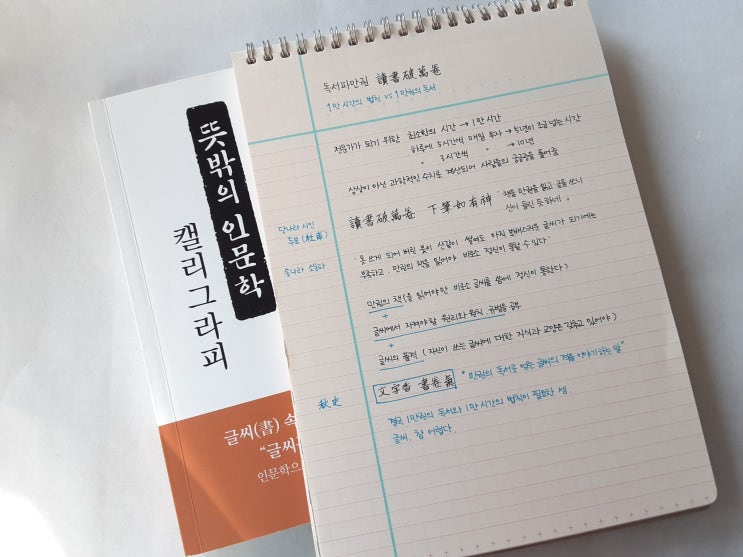 뜻밖의 인문학
캘리그라피
글씨(書) 속
"글씨
인문학으
독서파만권 讀書破萬卷
1만 시간의 법칙 vs 1만권의 독서
전문가가 되기 위한 최소한의 시간 → 1만 시간
하루에 5시간씩 매일 투자 → 5년이 조금 넘는 시간
" 3시간씩 " → 10년
상상이 아닌 과학적인 수치로 계산되어 사람들의 궁금증을 풀어줌
당나라 시인
두보(杜甫)
讀書破萬卷 下筆如有神 '책을 만권을 읽고 글을 쓰니
신이 들린 듯 하네'
송나라 소동파
'못 쓰게 되어 버린 붓이 산같이 쌓여도 아직 보배스러운 글씨가 되기에는
부족하고, 만권의 책을 읽어야 비로소 정신이 통할 수 있다'
만권의 책(을 읽어야만 비로소 글씨를 씀에 정신이 통한다)
+
글씨에서 지켜야할 원리와 원칙, 규범을 공부
+
글씨의 품격 (자신이 쓰는 글씨에 대한 지식과 교양은 갖추고 있어야)
秋史
文字香 書卷氣 "만권의 독서로 얻는 글씨의 격을 이야기하는 말"
결국 1만권의 독서와 1만 시간의 법칙이 필요한 셈.
글씨, 참 어렵다.